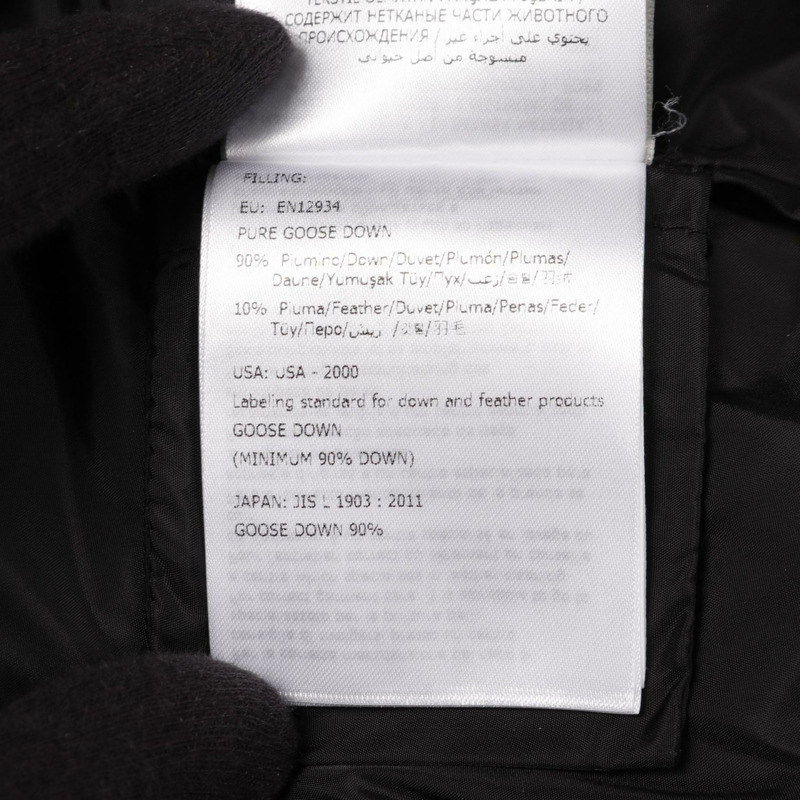 СОДЕРЖИТ НЕТКАНЫЕ ЧАСТИ ЖИВОТНОГО
ПРОИСХОЖДЕНИЯ / يحتوي على أجزاء غير
منسوجة من أصل حيواني
FILLING:
EU: EN12934
PURE GOOSE DOWN
90% Piumino/Down/Duvet/Plumón/Plumas/
Daune/Yumuşak Tüy/Пух/زغب/솜털/羽绒
10% Piuma/Feather/Duvet/Pluma/Penas/Feder/
Tüy/Перо/ريش/깃털/羽毛
USA: USA - 2000
Labeling standard for down and feather products
GOOSE DOWN
(MINIMUM 90% DOWN)
JAPAN: JIS L 1903 : 2011
GOOSE DOWN 90%